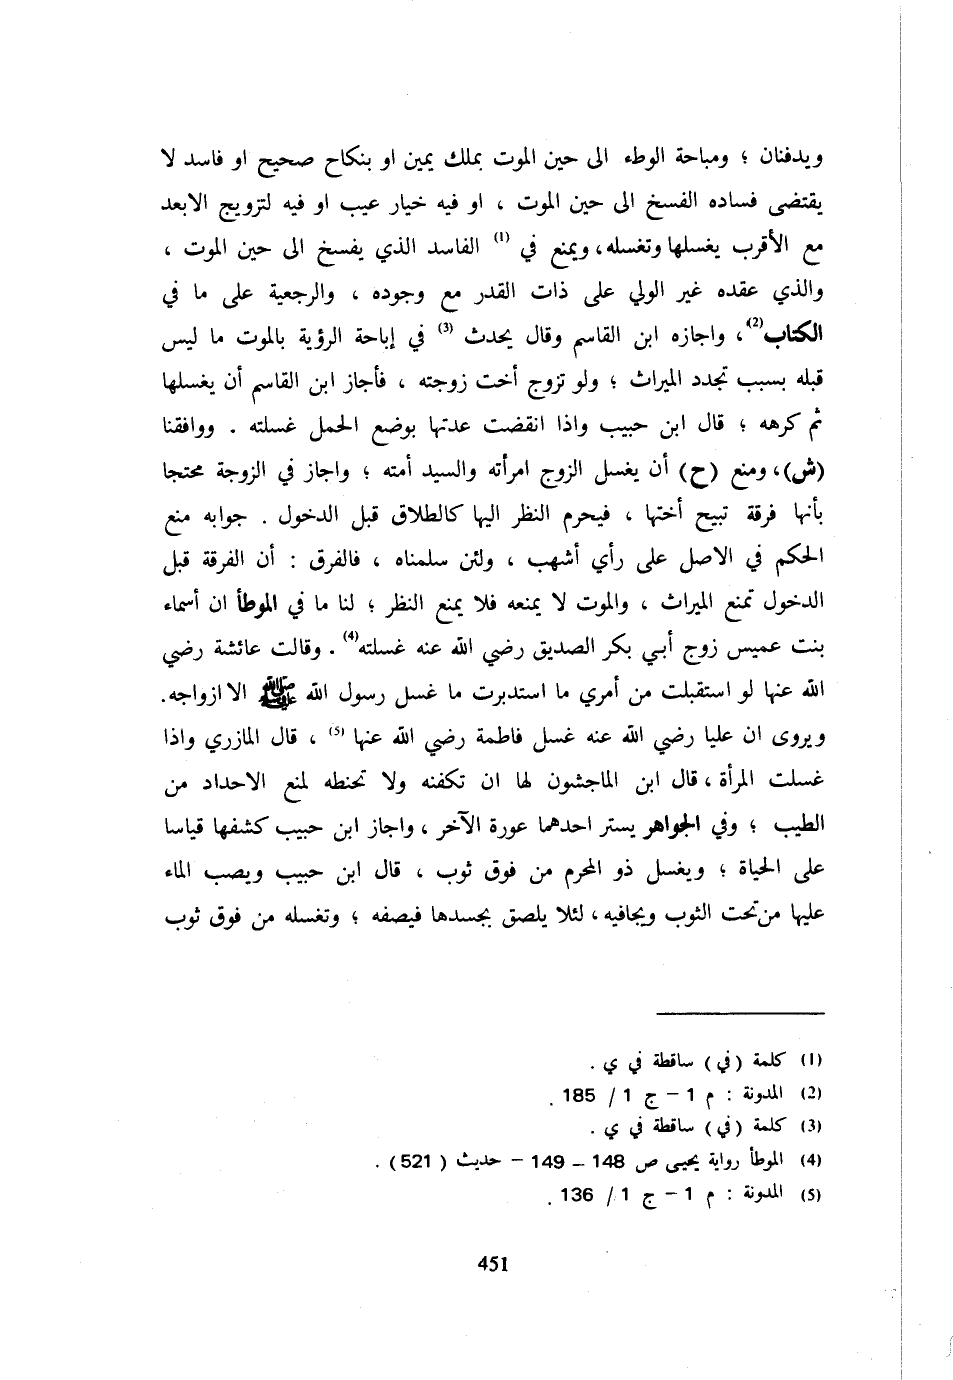 ويدفنان ؛ ومباحة الوطء الى حين الموت بملك يمين او بنكاح صحيح او فاسد لا
يقتضى فساده الفسخ الى حين الموت ، او فيه خيار عيب او فيه لتزويج الابعد
مع الأقرب يغسلها وتغسله، ويمنع في (1) الفاسد الذي يفسخ الى حين الموت ،
والذي عقده غير الولي على ذات القدر مع وجوده ، والرجعية على ما في
الكتاب(2)، واجازه ابن القاسم وقال يحدث (3) في إباحة الرؤية بالموت ما ليس
قبله بسبب تجدد الميراث ؛ ولو تزوج أخت زوجته ، فأجاز ابن القاسم أن يغسلها
ثم كرهه ؛ قال ابن حبيب واذا انقضت عدتها بوضع الحمل غسلته . ووافقنا
(ش)، ومنع (ح) أن يغسل الزوج امرأته والسيد أمته ؛ واجاز في الزوجة محتجا
بأنها فرقة تبيح أختها ، فيحرم النظر اليها كالطلاق قبل الدخول . جوابه منع
الحكم في الاصل على رأي أشهب ، ولئن سلمناه ، فالفرق : أن الفرقة قبل
الدخول تمنع الميراث ، والموت لا يمنعه فلا يمنع النظر ؛ لنا ما في الموطأ ان أسماء
بنت عميس زوج أبي بكر الصديق رضي الله عنه غسلته(4) . وقالت عائشة رضي
الله عنها لو استقبلت من أمري ما استدبرت ما غسل رسول الله ﷺ الا ازواجه.
ويروى ان عليا رضي الله عنه غسل فاطمة رضي الله عنها (5) ، قال المازري واذا
غسلت المرأة ، قال ابن الماجشون لها ان تكفنه ولا تحنطه لمنع الاحداد من
الطيب ؛ وفي الجواهر يستر احدهما عورة الآخر ، واجاز ابن حبيب كشفها قياسا
على الحياة ؛ ويغسل ذو المحرم من فوق ثوب ، قال ابن حبيب ويصب الماء
عليها من تحت الثوب ويجافيه، لئلا يلصق بجسدها فيصفه ؛ وتغسله من فوق ثوب
(1) كلمة (في) ساقطة في ي .
(2) المدونة : م 1 – ج 1 / 185 .
(3) كلمة (في) ساقطة في ي .
(4) الموطأ رواية يحيى ص 148 – 149 – حديث ( 521 ) .
(5) المدونة : م 1 – ج 1 / 136 .
451